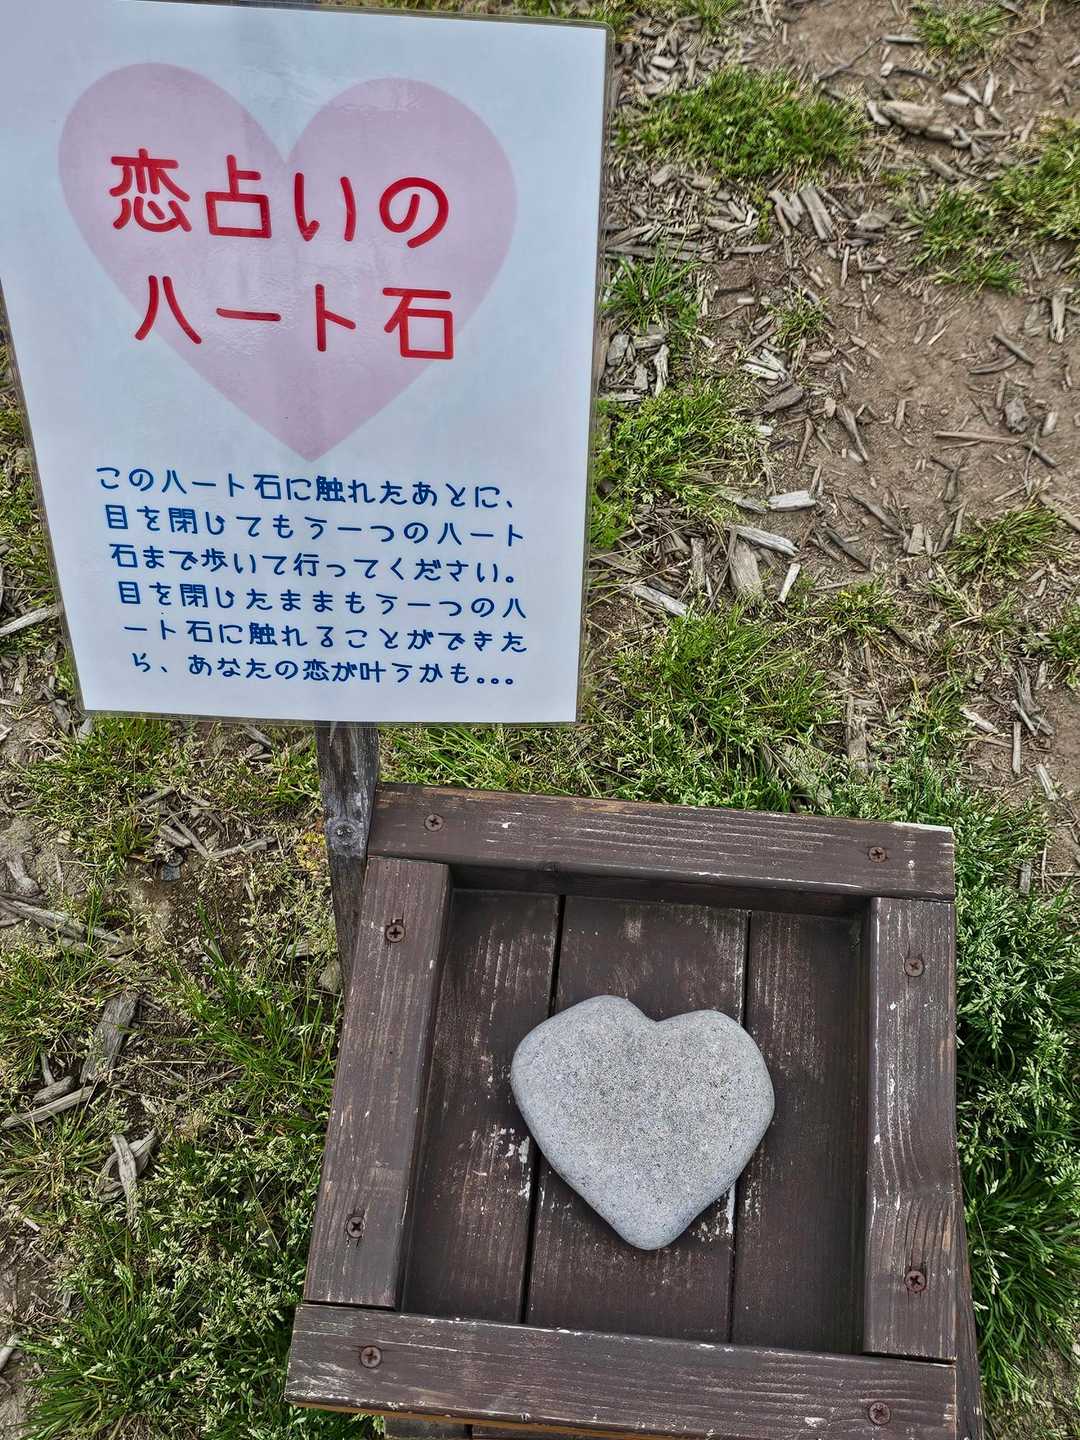 恋占いの
ハート石
このハート石に触れたあとに、
目を閉じてもう一つのハート
石まで歩いて行ってください。
目を閉じたままもう一つのハ
ート石に触れることができた
ら、あなたの恋が叶うかも...